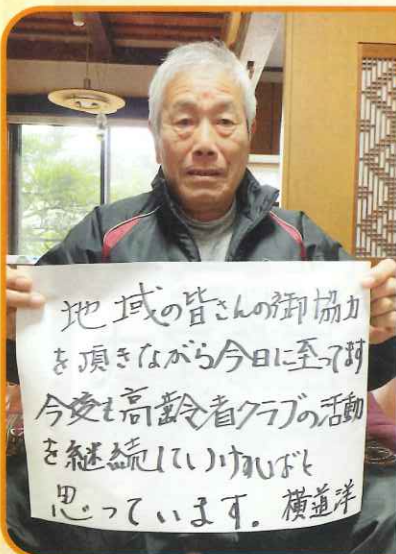 地域の皆さんの御協力
を頂きながら今日に至ってます
今後も高齢者クラブの活動
を継続していければと
思っています。 横道洋